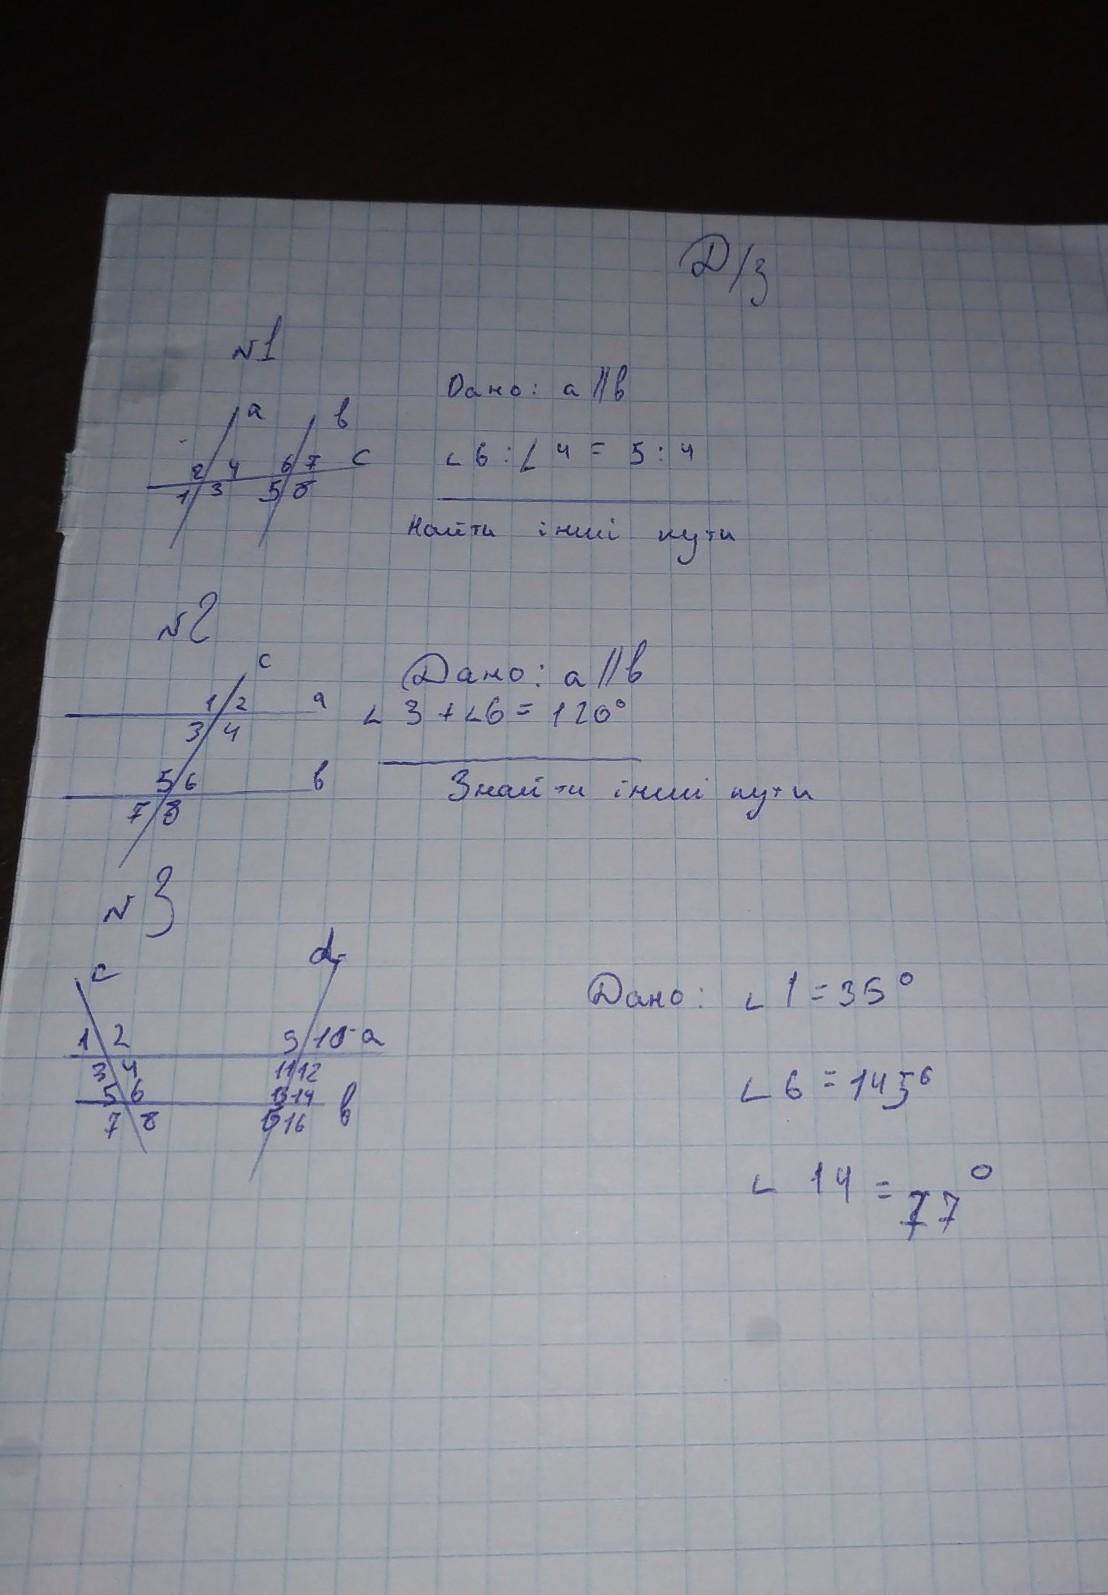 Д/з
№1
a b
Дано: a || b
2 4 6 7 c
1 3 5 8
∠6 : ∠4 = 5 : 4
Найти інші кути
№2
c
Дано: a || b
1 2 a
∠3 + ∠6 = 120°
3 4
5 6 b
7 8
Знайти інші кути
№3
c d
Дано: ∠1 = 35°
1 2 9 10 a
3 4 11 12
5 6 13 14
∠6 = 145°
7 8 15 16 b
∠14 = 77°